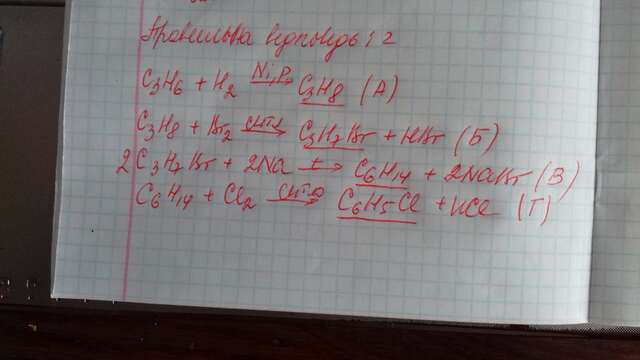 Правильна відповідь : 2
C3H6 + H2 Ni,P→ C3H8 (А)
C3H8 + Br2 світло→ C3H7Br + HBr (Б)
2C3H7Br + 2Na t→ C6H14 + 2NaBr (В)
C6H14 + Cl2 світло→ C6H5Cl + HCl (Г)